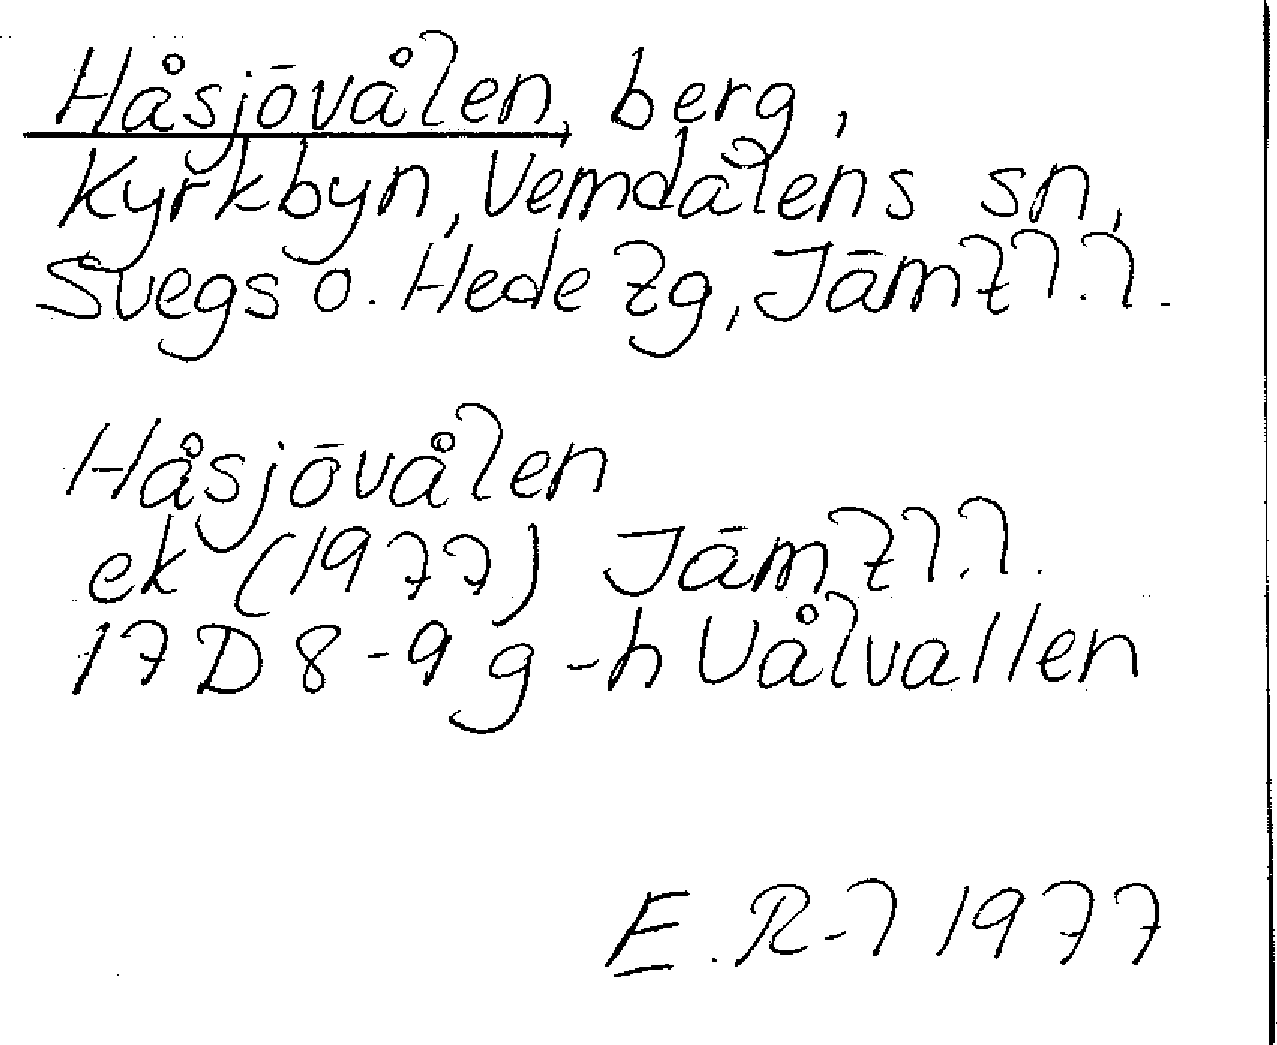 Håsjövålen, berg,
Kyrkbyn, Vemdalens sn,
Svegs o. Hede tg, Jämtl.l.
Håsjövålen
ek (1977) Jämtl.l.
17D 8-9 g-h Vålvallen
E. R-l 1977